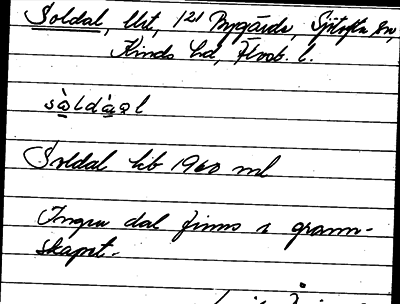 Soldal, lht, 121 Nygårda, Sjötofta sn,
Kinds hd, Älvsb. l.
sò̱ldà̱ɷl
Soldal lht 1960 ml
Ingen dal finns i grann-
skapet.